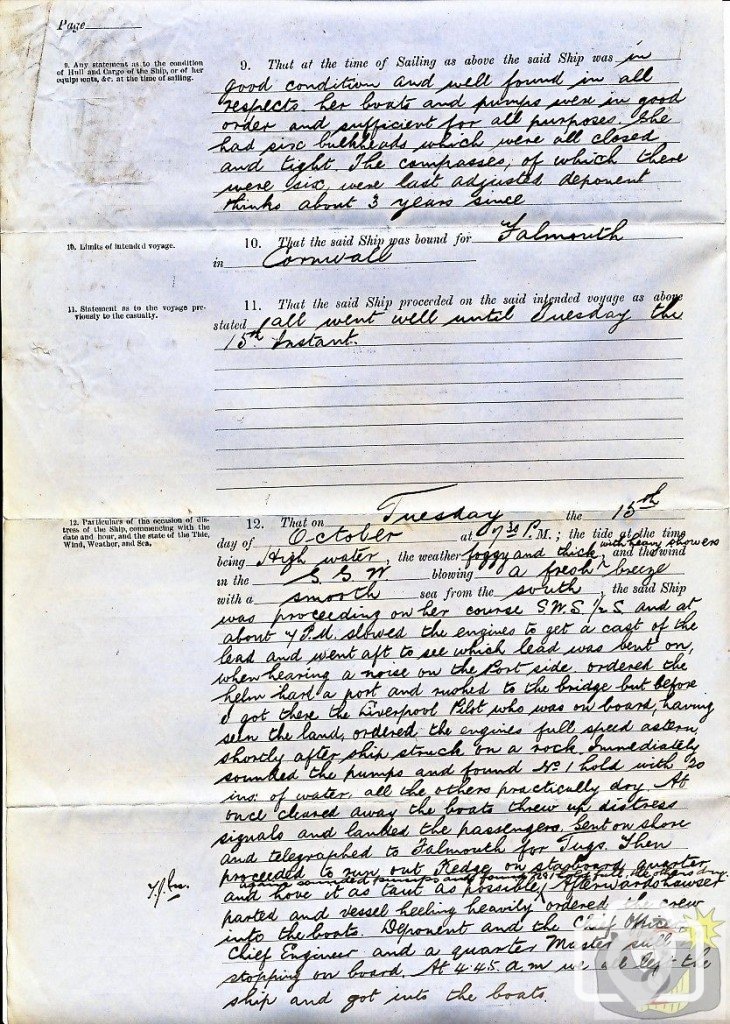 Page
9. Any statement as to the condition
of Hull and Cargo of the Ship, or of her
equipments, &c. at the time of sailing.
9. That at the time of Sailing as above the said Ship was in
good condition and well found in all
respects her boats and pumps were in good
order and sufficient for all purposes. She
had six bulkheads which were all closed
and tight. The compasses, of which there
were six, were last adjusted deponent
thinks about 3 years since
10. Limits of intended voyage.
10. That the said Ship was bound for Falmouth
in Cornwall
11. Statement as to the voyage pre-
viously to the casualty.
11. That the said Ship proceeded on the said intended voyage as above
stated all went well until Tuesday the
15th Instant.
12. Particulars of the occasion of dis-
tress of the Ship, commencing with the
date and hour, and the state of the Tide,
Wind, Weather, and Sea,
12. That on Tuesday the 15th
day of October at 7.30 P.M.; the tide at the time
being High water, the weather foggy and thick, with heavy showers and the wind
in the S S W blowing a fresh breeze
with a smooth sea from the south, the said Ship
was proceeding on her course S.W.S 1/2 S and at
about 7 P.M. slowed the engines to get a cast of the
lead and went aft to see which lead was bent on,
when hearing a noise on the Port side ordered the
helm hard a port and rushed to the bridge but before
I got there the Liverpool Pilot who was on board, having
seen the land, ordered the engines full speed astern,
shortly after ship struck on a rock. Immediately
sounded the pumps and found No 1 hold with 20
ins. of water all the others practically dry. At
once cleared away the boats threw up distress
signals and landed the passengers. Sent on shore
and telegraphed to Falmouth for Tugs. Then
proceeded to run out Kedge on starboard quarter
again sounded pumps and found No 1 hold full, the others dry.
and hove it as taut as possible, Afterwards hawser
parted and vessel heeling heavily ordered the crew
into the boats. Deponent and the Chief Officer
Chief Engineer and a quarter Master still
stopping on board. At 4.45. a.m we all left the
ship and got into the boats.